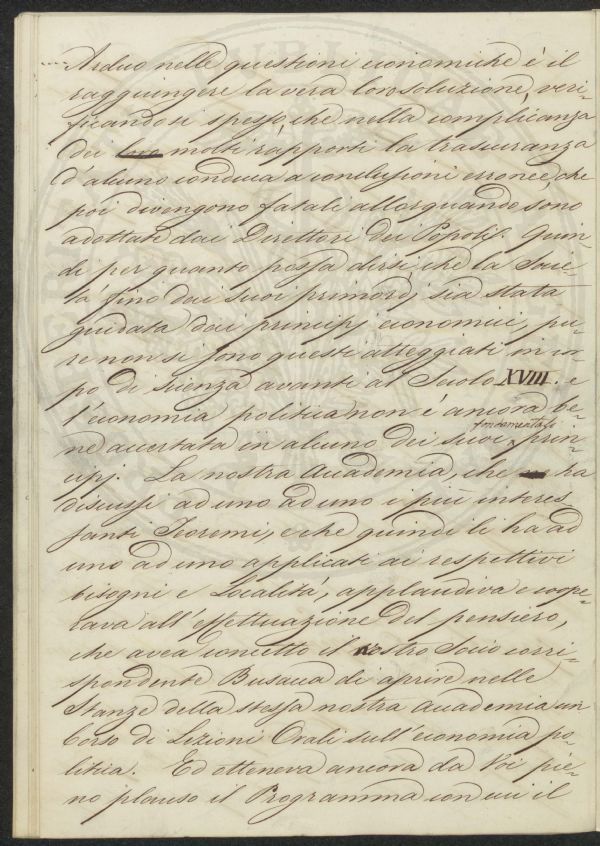 Arduo nelle questioni economiche è il
raggiungere la vera loro soluzione, veri-
ficandosi spesso, che nella complicanza
dei molti rapporti la trascuranza
d'alcuno conduca a conclusioni erronee, che
poi divengono fatali allorquando sono
adottate dai Direttori dei Popoli. Quin-
di per quanto possa dirsi, che la Socie-
tà fino dai suoi primordj sia stata
guidata dai principj economici, pu-
re non si sono questi atteggiati in cor-
po di scienza avanti al Secolo XVIII. e
l'economia politica non è ancora be-
ne accertata in alcuno dei suoi fondamentali prin-
cipj. La nostra Accademia, che ha
discussi ad uno ad uno i più interes
santi Teoremi, e che quindi li ha ad
uno ad uno applicati ai respettivi
bisogni e Località, applaudiva e coope-
rava all'effettuazione del pensiero,
che avea concetto il nostro Socio corri-
spondente Busacca di aprire nelle
Stanze della stessa nostra Accademia un
Corso di Lezioni Orali sull'economia po-
litica. Ed otteneva ancora da Voi pie-
no plauso il Programma con cui il